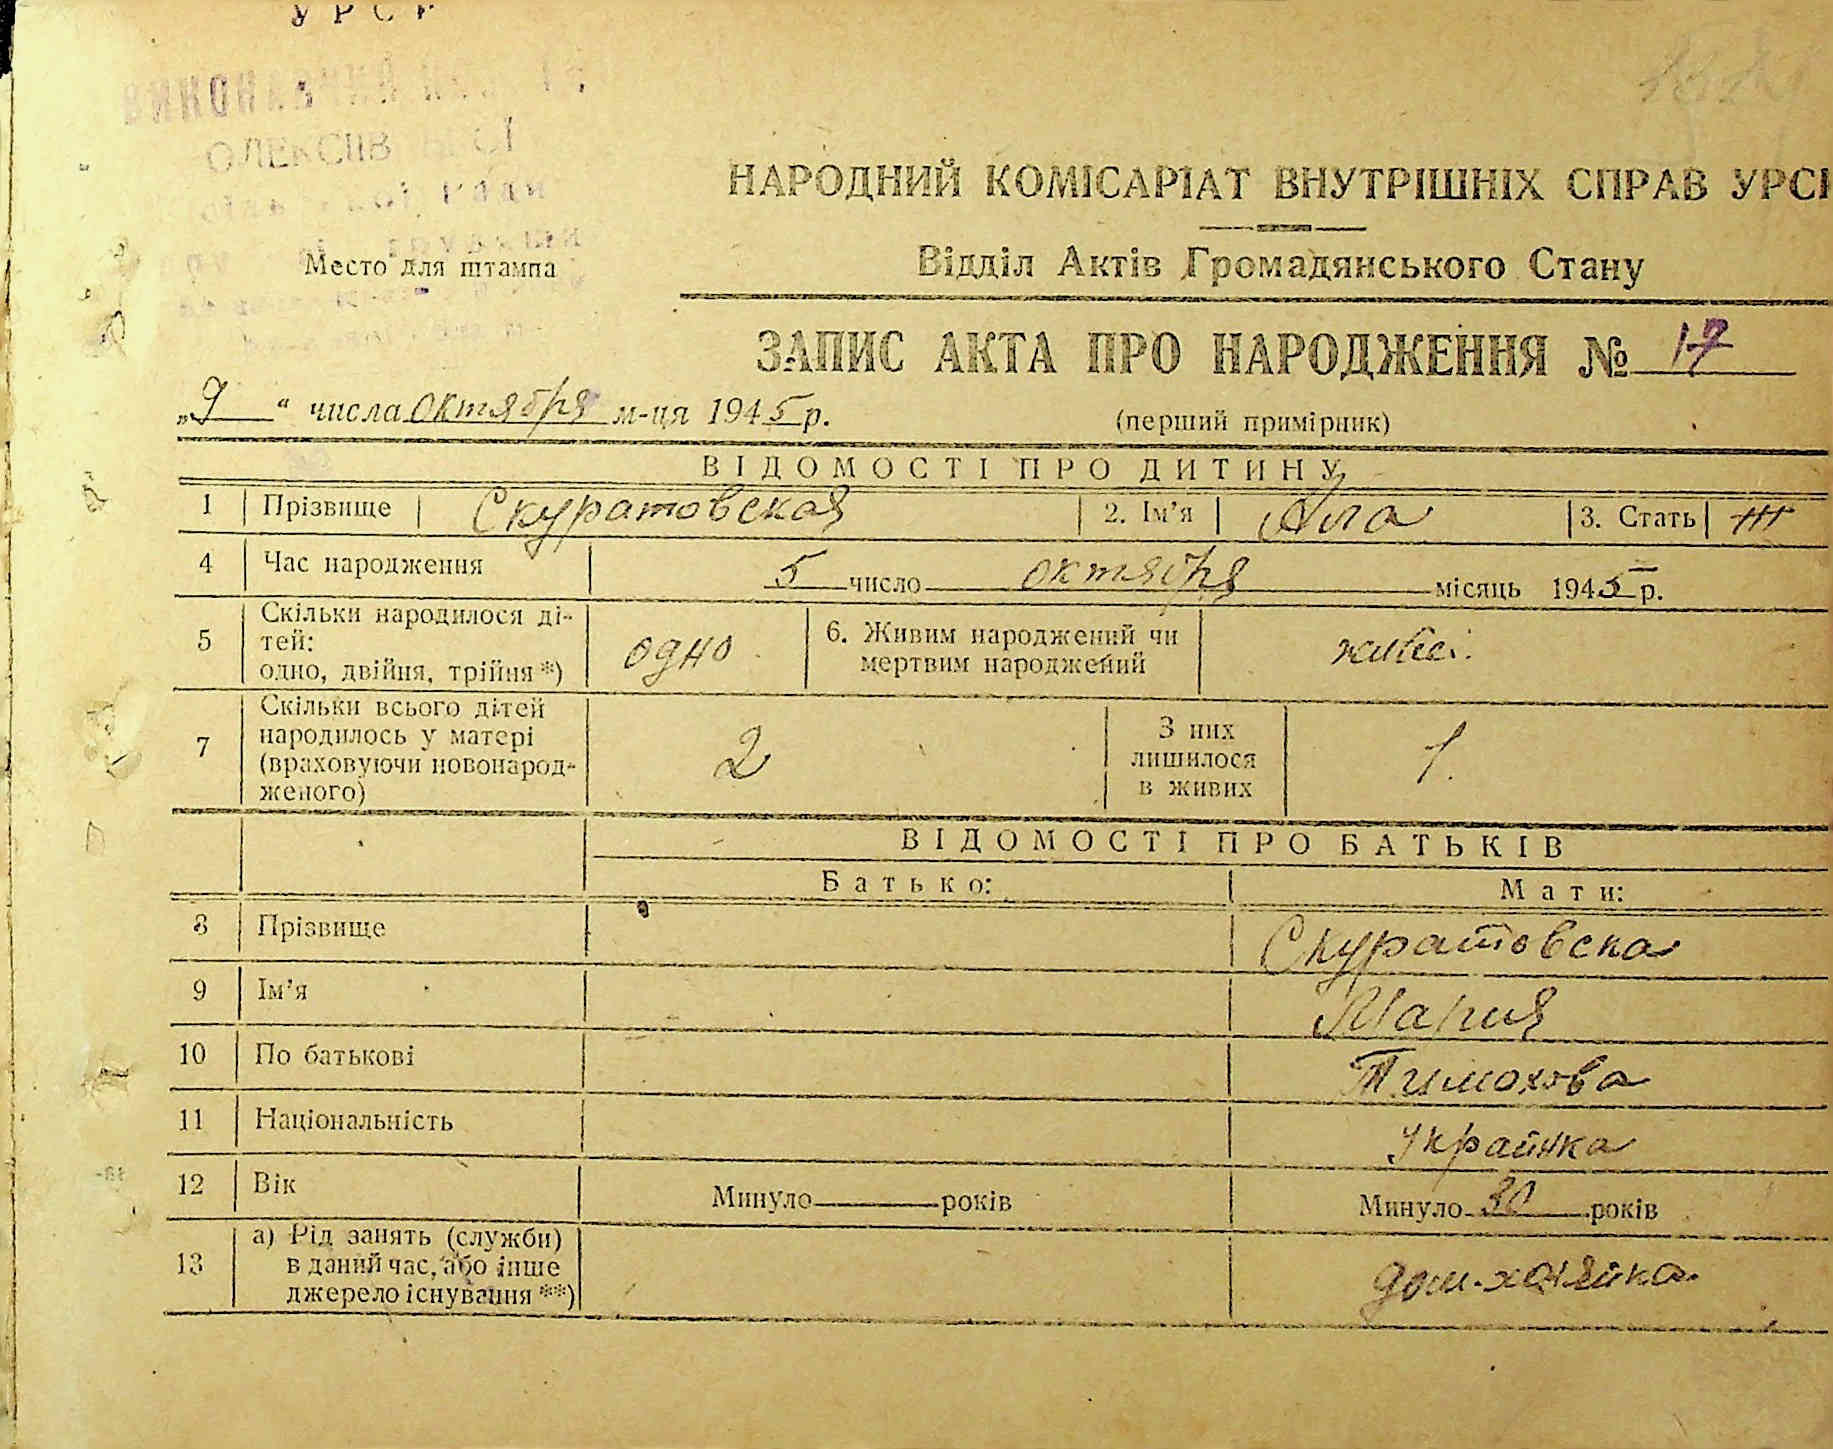 УРСР
ОЛЕКСІЇВ
Место для штампа
НАРОДНИЙ КОМІСАРІАТ ВНУТРІШНІХ СПРАВ УРСР
Відділ Актів Громадянського Стану
ЗАПИС АКТА ПРО НАРОДЖЕННЯ № 17
„9“ числа октября м-ця 1945 р.
(перший примірник)
ВІДОМОСТІ ПРО ДИТИНУ
1 Прізвище Скуратовская 2. Ім’я Ала 3. Стать Ж
4 Час народження 5 число октября місяць 1945 р.
5 Скільки народилося ді-
тей:
одно, двійня, трійня *) одно
6. Живим народжений чи
мертвим народжений
7 Скільки всього дітей
народилось у матері
(враховуючи новонарод-
женого) 2
З них
лишилося
в живих 1.
ВІДОМОСТІ ПРО БАТЬКІВ
Батько: Мати:
8 Прізвище Скуратовска
9 Ім’я Мария
10 По батькові Тимохова
11 Національність Украйнка
12 Вік Минуло років Минуло 30 років
13 а) Рід занять (служби)
в даний час, або інше
джерело існування **) дом-хазяйка.